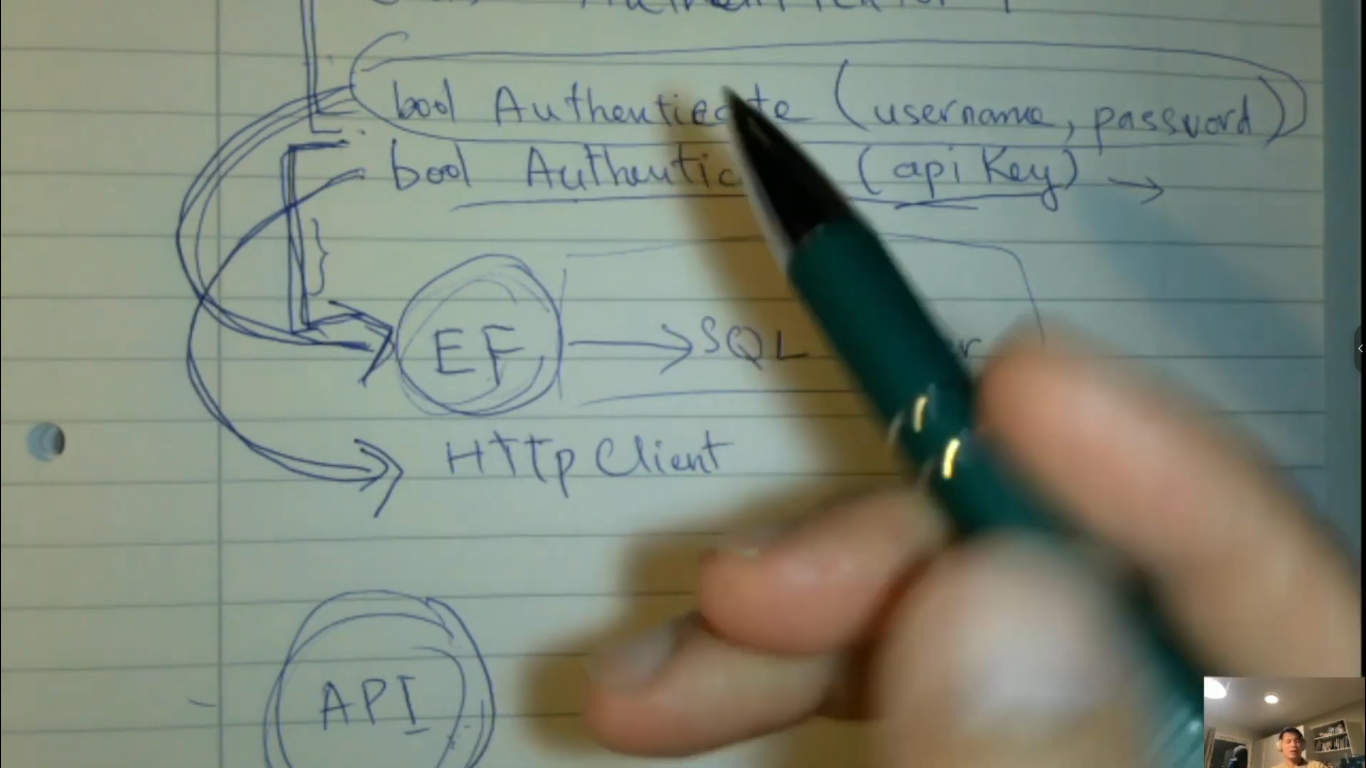 bool Authenticate (username, password)
bool Authentic (api Key) →
EF → SQL
HTTp Client
API